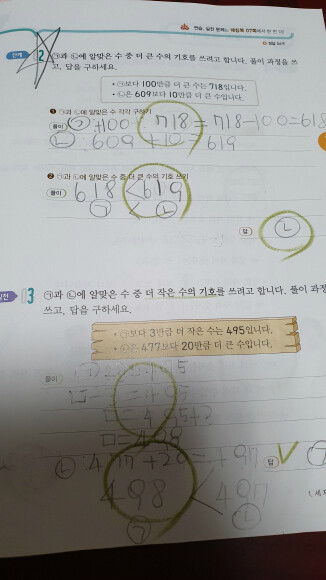 연습, 실전 문제는 매칭북 07쪽에서 한 번 더!
정답 50쪽
단계 2 ㉠과 ㉡에 알맞은 수 중 더 큰 수의 기호를 쓰려고 합니다. 풀이 과정을 쓰
고, 답을 구하세요.
• ㉠보다 100만큼 더 큰 수는 718입니다.
• ㉡은 609보다 10만큼 더 큰 수입니다.
❶ ㉠과 ㉡에 알맞은 수 각각 구하기
풀이 ㉠ +100 718=718-100=618
㉡ 609+10=619
❷ ㉠과 ㉡에 알맞은 수 중 더 큰 수의 기호 쓰기
풀이 618<619
㉠ ㉡
답 ㉡
실전 03 ㉠과 ㉡에 알맞은 수 중 더 작은 수의 기호를 쓰려고 합니다. 풀이 과정
쓰고, 답을 구하세요.
• ㉠보다 3만큼 더 작은 수는 495입니다.
• ㉡은 477보다 20만큼 더 큰 수입니다.
풀이
□=495+3
□=498
㉡ 477+20=497
답 ㉠
498<497
㉠ ㉡